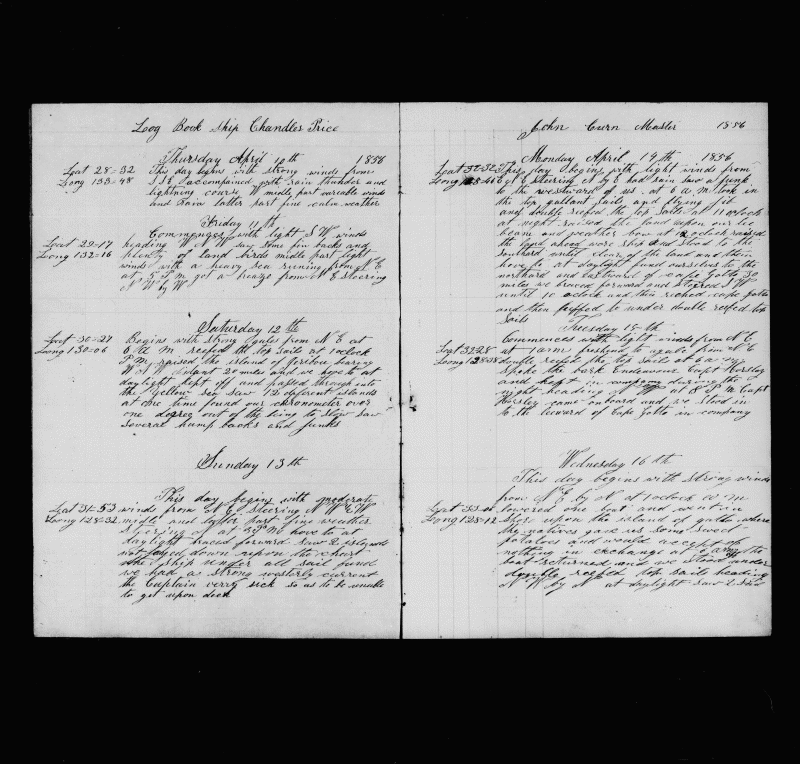 Log Book Ship Chandler Price
Thursday April 10th 1856
Lat 28-32 This day begins with strong winds from
Long 133-48 S S E accompained with rain thunder and
lightning course W midle part variable winds
and Rain latter part fine calm weather
Friday 11th
Commences with light S W winds
Lat 29-17 heading W N W saw some fin backs and
Long 132-16 plenty of land birds midle part light
winds with a heavy sea runing from N E
at 5 P m got a breeze from N E Steering
N W by W
Saturday 12th
Lat 30-27 Begins with strong gales from N E at
Long 130-06 6 A M reefed the top sails at 1 oclock
P M raised the island of bearing
W N W distant 20 miles and we hove to at
daylight kept off and passed through into
the Yellow sea saw 12 deferent islands
at one time found our chronometer over
one degree out of the being to slow saw
several hump backs and junks
Sunday 13th
This day begins with moderate
Lat 31-53 winds from N E Steering N W & W
Long 128-32 midle and latter part fine weather
Stering at 7 P M hove to at
day light braced forward saw 2 islands
not layed down uppon the chart
the ship under all sail found
we had a strong westerly current
the Captain verry sick so as to be unable
to get upon deck
John Curn Master 1856
Monday April 14th 1856
Lat 32-32 This day begins with light winds from
Long 128-46 E at 6 steering at 8 had rain saw a junk
to the westward of us at 6 a m took in
the top gallant sails and flying jib
and double reefed the top sails at 11 oclock
at night raised the land upon our lee
beam and weather bow at 12 oclock raised
the land ahead wore ship and stood to the
southard until clear of the land and then
hove to at daylight found ourselves to the
northard and eastward of cape Gotto 30
miles we braced forward and steered S W
until 10 oclock and then reched cape Gotto
and then jibbed to under double reefed top
sails
Tuesday 15th
Commences with light winds from N E
Lat 32-28 at 1 am freshened to a gale from N E
Long 128-38 double reefed the top sails at 6 a m
spoke the bark Endeavour Capt Horsley
and kept in company during the
night heading N W at 8 P M Capt
Horsley came on board and we stood in
to the leeward of Cape Gotto in company
Wednesday 16th
This day begins with strong winds
from N E by N at 1 oclock w m
Lat 33-01 lowered one boat and went in
Long 128-12 shore upon the island of gotto where
the natives gave us some sweet
potatoes and would accept of
nothing in exchange at 6 a m the
boat returned and we stood under
double reefed top sails heading
N W by N at daylight saw 2